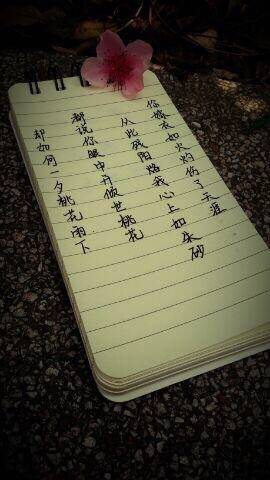 你嫁衣如火灼伤了天涯
从此残阳烙我心上如朱砂
都说你眼中开倾世桃花
却如何一夕桃花雨下